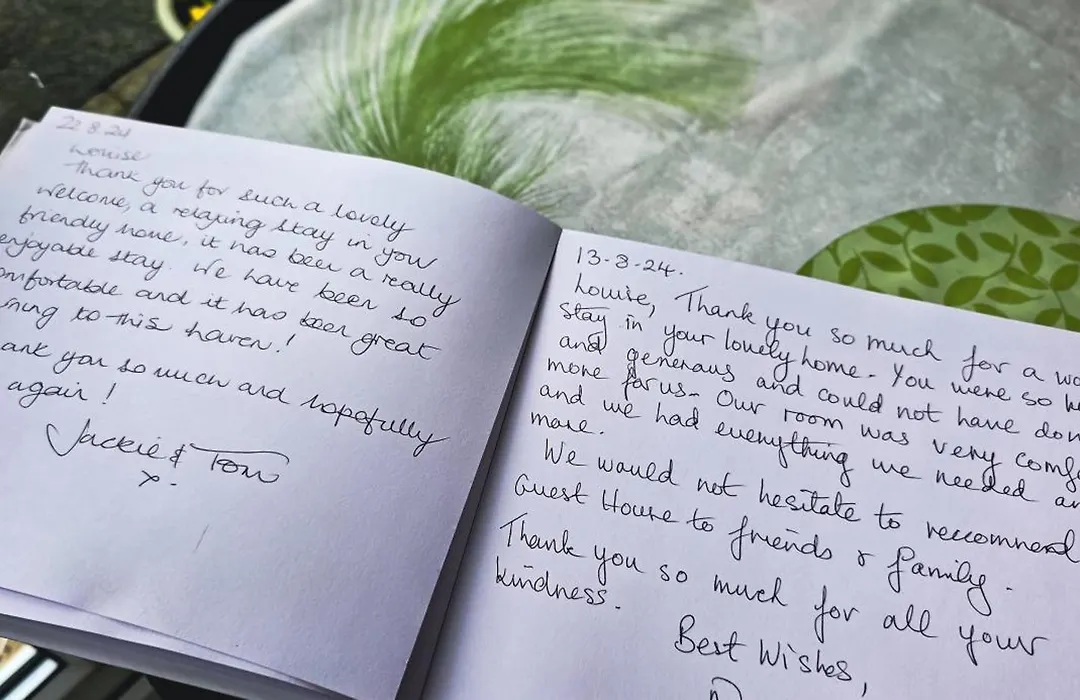 22.8.24
Louise
Thank you for such a lovely
welcome, a relaxing stay in you
friendly home, it has been a really
enjoyable stay. We have been so
comfortable and it has been great
to this haven!
you so much and hopefully
again!
Jackie & Tom
x.
13-8-24.
Louise, Thank you so much for a
stay in your lovely home. You were so
and generous and could not have
more for us. Our room was very
and we had everything we needed
more.
We would not hesitate to recommend
Guest House to friends & family.
Thank you so much for all your
kindness.
Best Wishes,